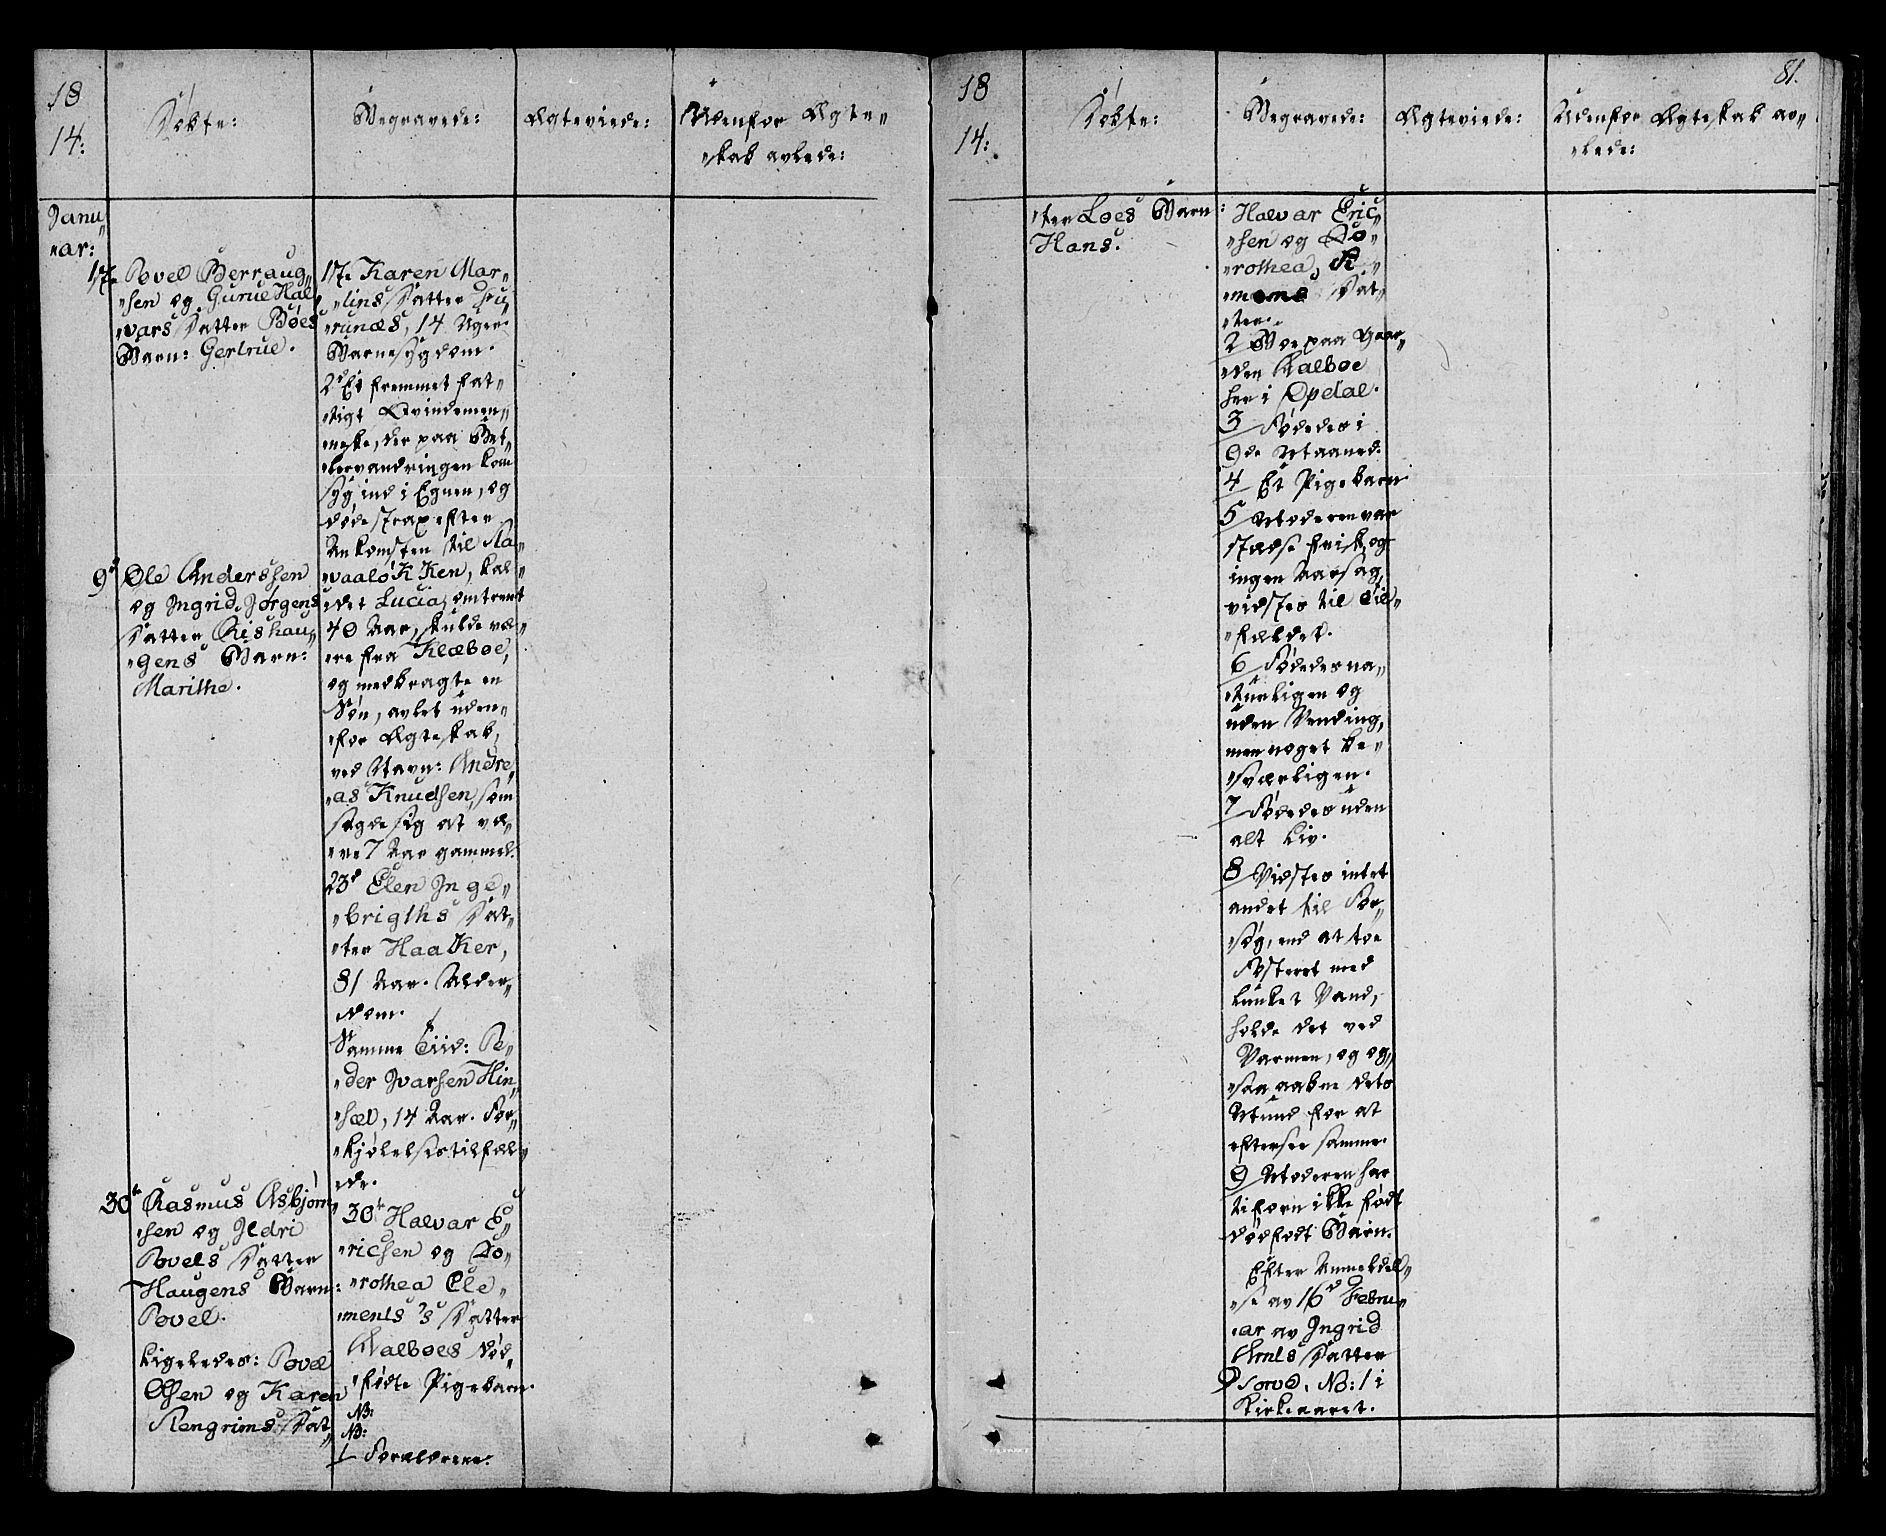 18
14:
Døbte:
Begravede:
Ægteviede:
Udenfor Ægte„
„skab avlede:
Janu„
„ar:
17de Povel Berraug„
„sen og Gurue Hal„
„vars Datter Bøes
Barn: Gertrue.
9d Ole Anderssen
og Ingrid Jørgens
Datter Rishau„
„gens Barn:
Marithe.
30te Rasmus Asbjørn„
„sen og Ildri
Povels Datter
Haugens Barn:
Povel.
Ligeledes: Povel
Olsen og Karen
Stengrims Dat„
17de Karen Mar„
„lins Datter
„runæs, 14 Uger.
Barnesygdom.
2d Et fremmet fat„
„tigt Qvindemen„
„neske, der paa Bet„
„lervandringen kom
syg ind i Egnen, og
døde strax efter
Ankomsten til
„vaaløkken, kal„
„det Lucia, omtrent
40 Aar, skulde væ„
„re fra Klæboe,
og medbragte en
Søn, avlet uden„
„for Ægteskab,
ved Navn: Andre„
„as Knudsen, som
sagde sig at væ„
„re 7 Aar gammel.
23d Elen Inge„
„brigths Dat„
„ter Haaker,
81 Aar. Alder„
„dom.
Samme Tiid: Pe„
„der Ivarsen Hin„
„sæl, 14 Aar. For„
„kjølelsestilfæl„
„de.
30te Halvar E„
„ricsen og Do„
„rothea Cle„
„ments's Datter
Aalboes død„
„fødte Pigebarn.
NB:
NB:
1 Forældrene:
18
14:
Døbte:
Begravede:
Ægteviede:
Udenfor Ægteskab av„
„lede:
81.
„ter Loes Barn:
Hans.
Halvar Eric„
„sen og Do„
„rothea,
Dat„
„ter.
2 Boe paa Gaar„
„den Aalboe
her i Opdal.
3 Fødedes i
9de Maaned.
4 Et Pigebarn
5 Moderen var
stædse frisk, og
ingen Aarsag
vidstes til Til„
„fældet.
6 Fødedes na„
„turligen og
uden Vending,
men noget be„
„sværligen.
7 Fødedes uden
alt Liv.
8 Vidstes intet
andet til For„
„søg, end at toe
Fosteret med
lunket Vand,
holde det ved
Varmen, og og„
„saa aabne dets
Mund for at
eftersee samme.
9 Moderen har
tiforn ikke født
dødfødt Barn.
Efter Anmeldel„
„se av 16d Febru„
„ar av Ingrid
Datter
No: 1 i
Kirkeaaret.